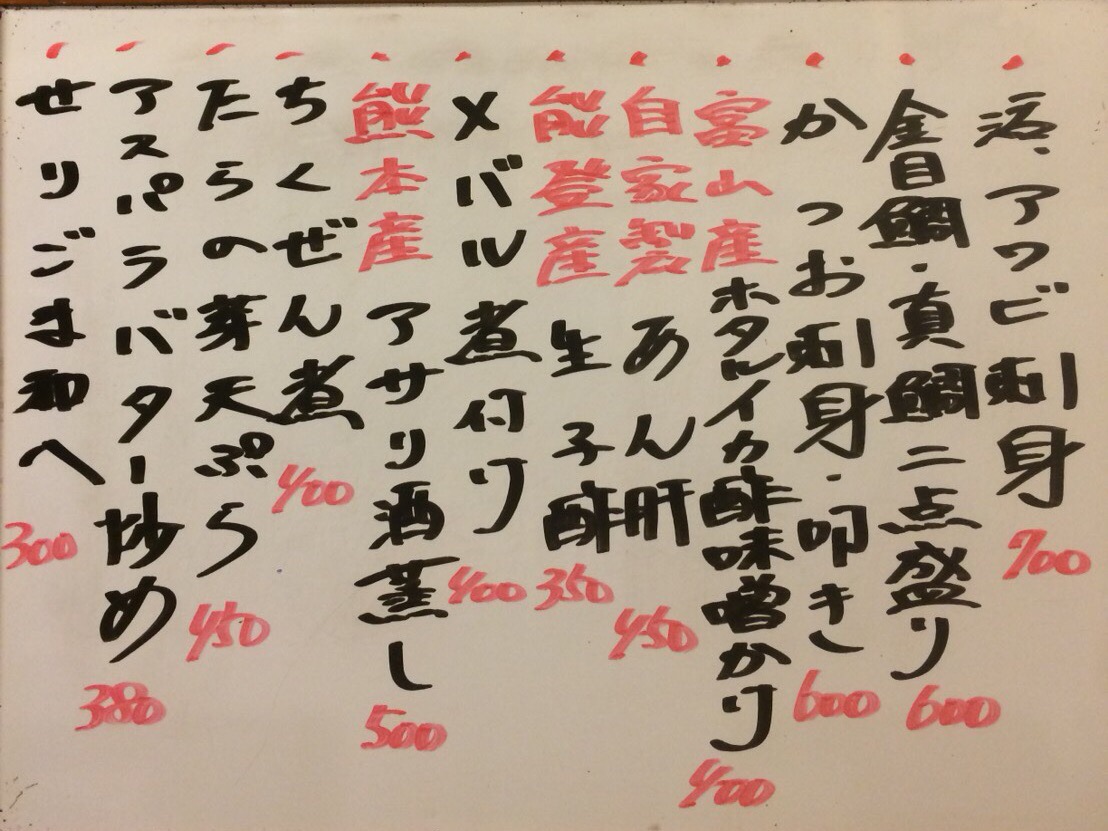 活、アワビ刺身 700
金目鯛・真鯛二点盛り 600
かつお刺身・叩き 600
富山産 ホタルイカ酢味噌かり 400
自家製 あん肝 450
能登産 生子酢 350
メバル煮付け 400
熊本産 アサリ酒蒸し 500
ちくぜん煮 400
たらの芽天ぷら 450
アスパラバター炒め 380
せりごま和へ 300